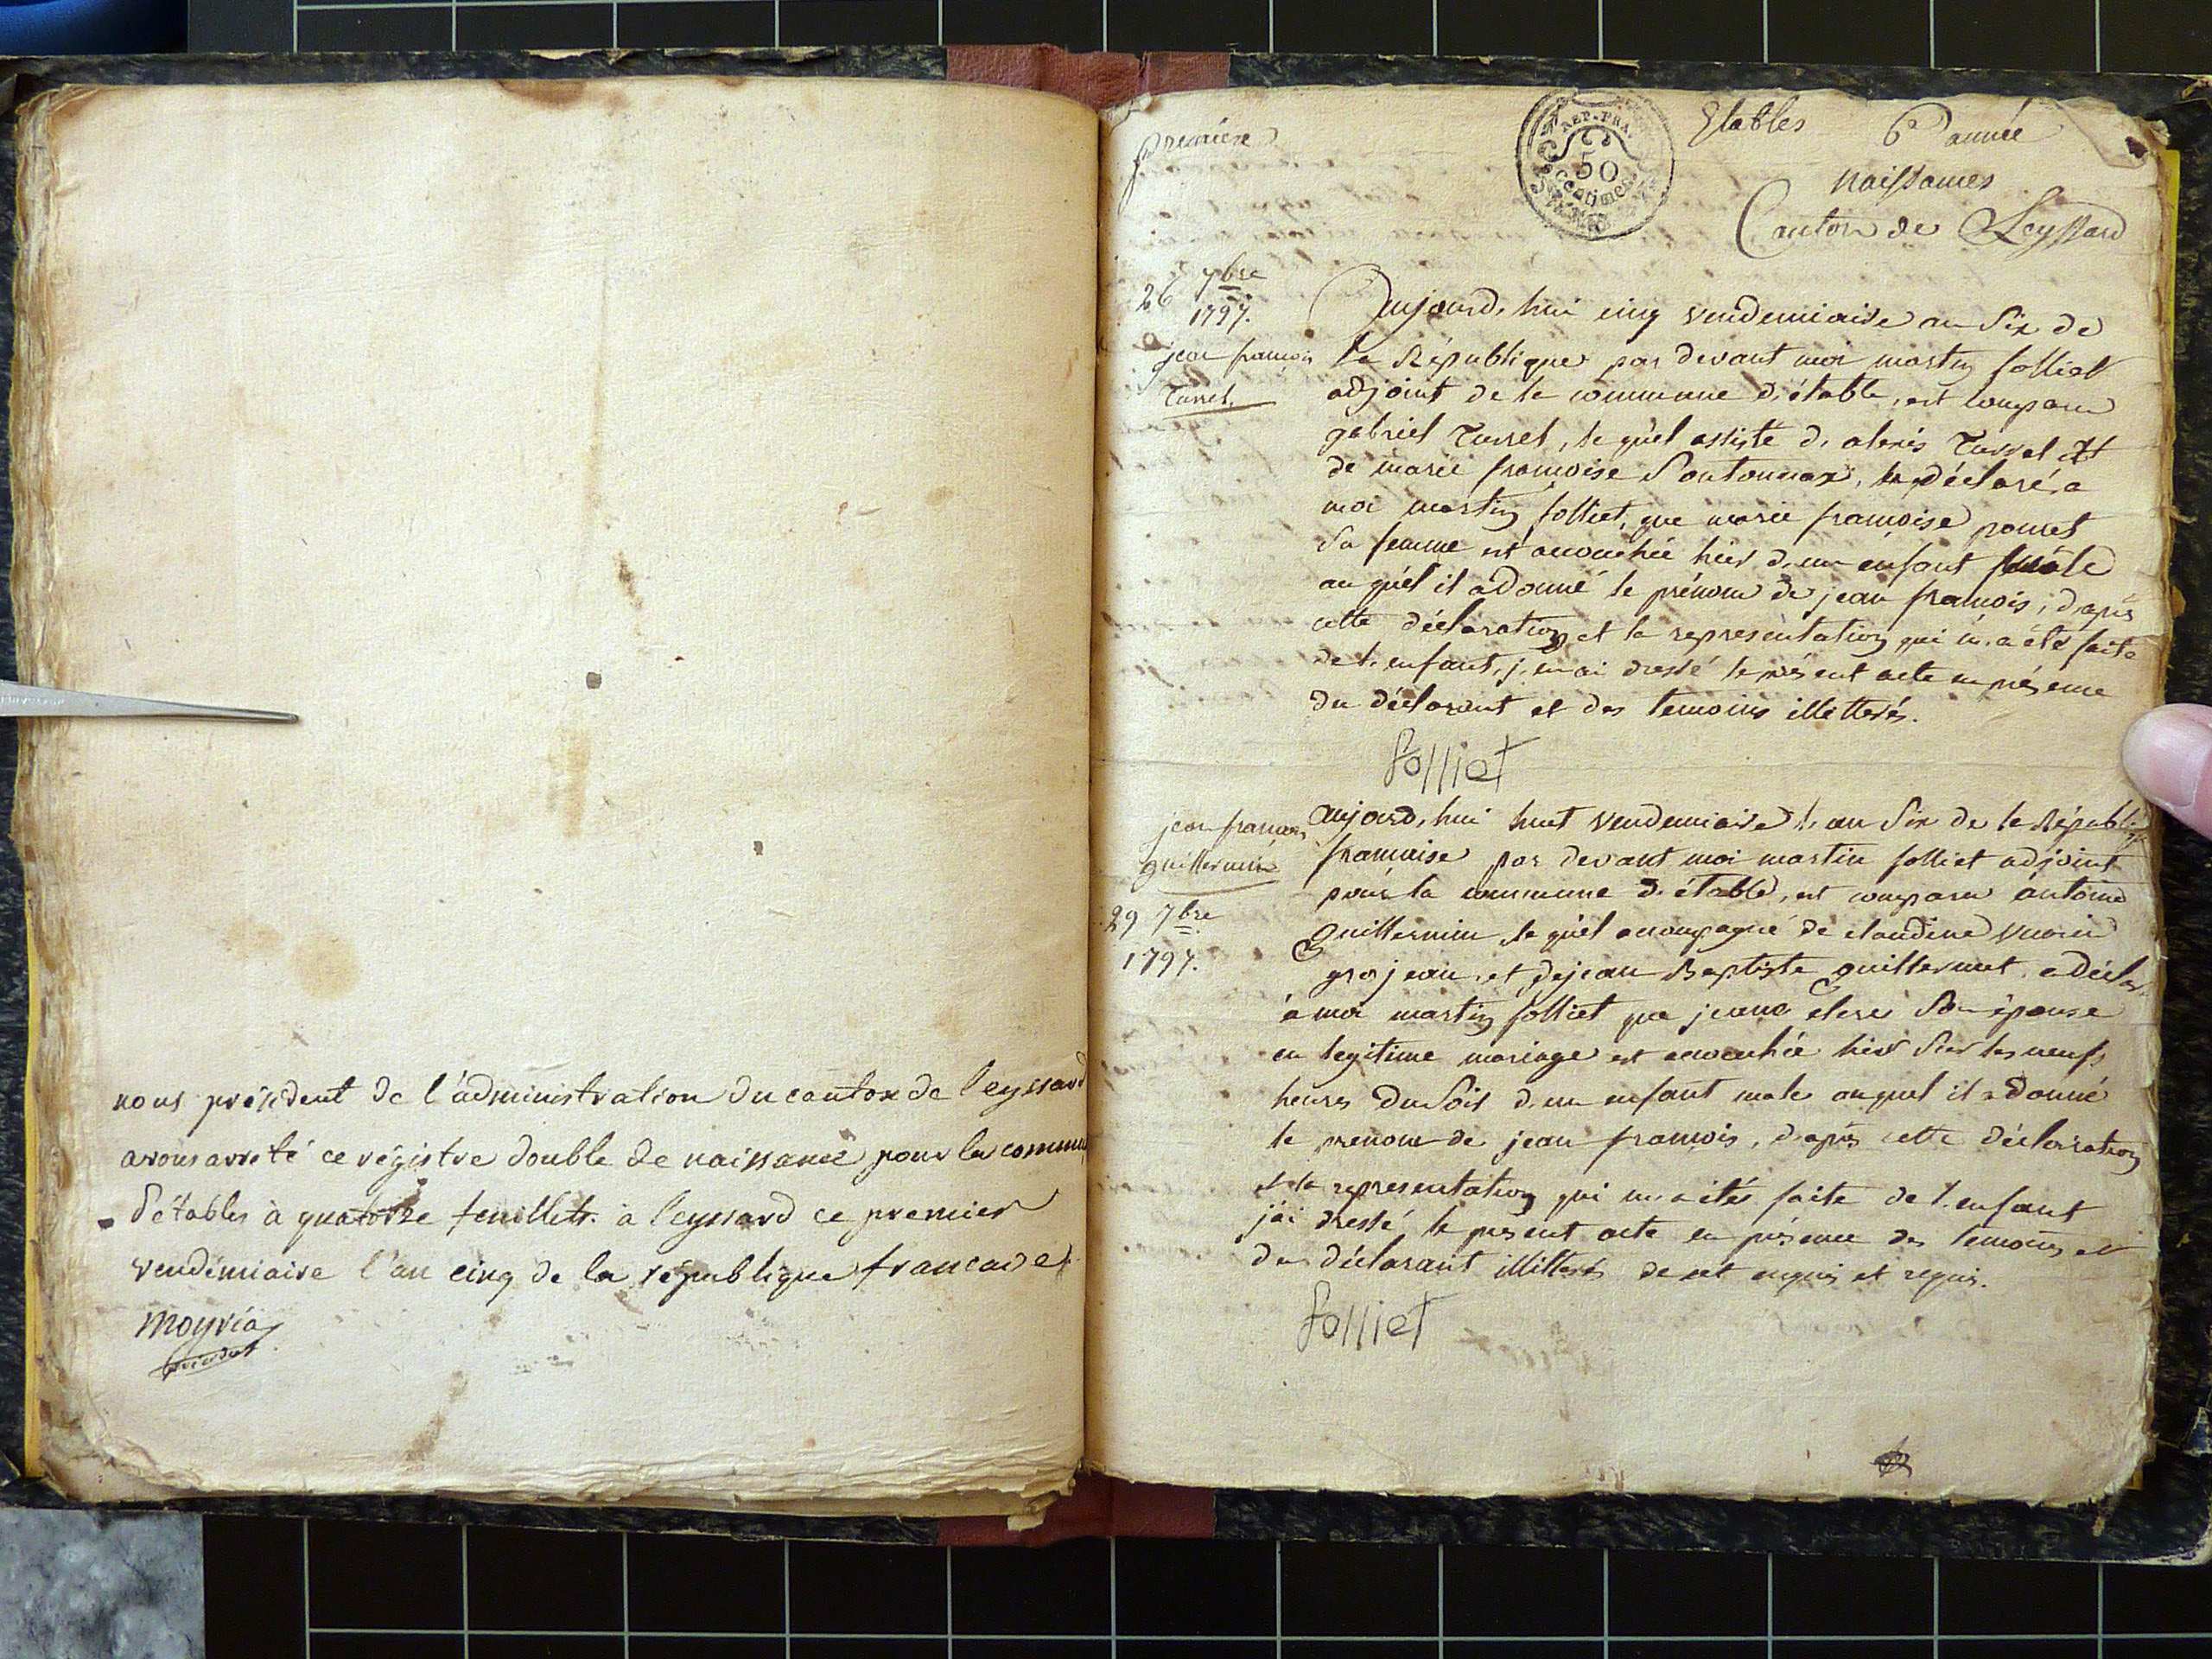 nous président de l'administration du canton de leyssard
avons arreté ce régistre double de naissance pour la commune
d'étables à quatorze feuillets. a leyssard ce premier
vendémiaire l'an cinq de la république francaise
moyria
président
premiere
REP. FRA.
50
centimes
Etables 6e année
naissances
Canton de Leyssard
26 7bre
1797.
jean françois
Turrel.
Aujourd'hui cinq vendemiaire an six de
la République par devant moi martin folliet
adjoint de la commune d'étable, est comparu
gabriel Turrel, le quel assisté d'alexis Turrel et
de marie françoise, a déclaré a
moi martin folliet, que marie françoise poncet
sa femme est accouchée hier d'un enfant mâle
au quel il a donné le prénom de jean françois, d'après
cette déclaration et la representation qui m'a été faite
de l'enfant, j'en ai dressé le présent acte en présence
du déclarant et des temoins illetterés.
folliet
jean françois
guillermin
29 7bre
1797.
aujourd'hui huit vendemiaire l'an six de la République
française par devant moi martin folliet adjoint
pour la commune d'étable, est comparu antoine
guillermin le quel accompagné de claudine
grosjean, et de jean Baptiste guillermet, a déclaré
à moi martin folliet que jeanne son épouse
en legitime mariage est accouchée hier sur les neufs
heures du soir d'un enfant male auquel il a donné
le prenom de jean françois, d'après cette déclaration
et la representation qui m'a étée faite de l'enfant
j'ai dressé le present acte en présence des temoins et
du déclarant illitterés de cet enquis et requis.
folliet